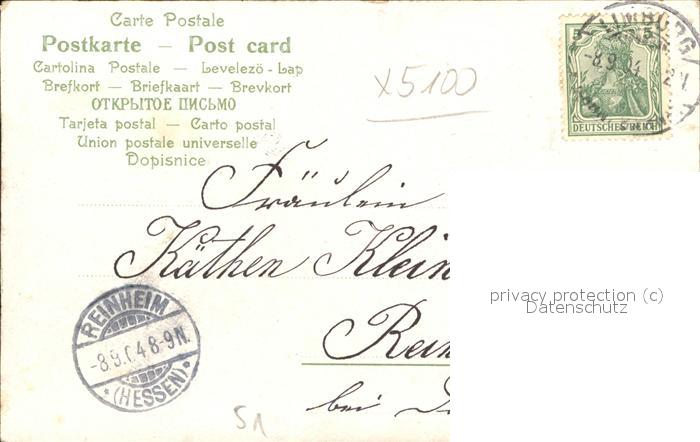 Carte Postale
Postkarte — Post card
Cartolina Postale — Levelező - Lap
Brefkort — Briefkaart — Brevkort
ОТКРЫТОЕ ПИСЬМО
Tarjeta postal — Carto postal
Union postale universelle
Dopisnice
x5100
LIMBURG
8.9.04
DEUTSCHES REICH
Fräulein
Käthen Klein
Rein
bei D
REINHEIM
-8.9.04 8-9N.
* (HESSEN) *
51
privacy protection (c)
Datenschutz